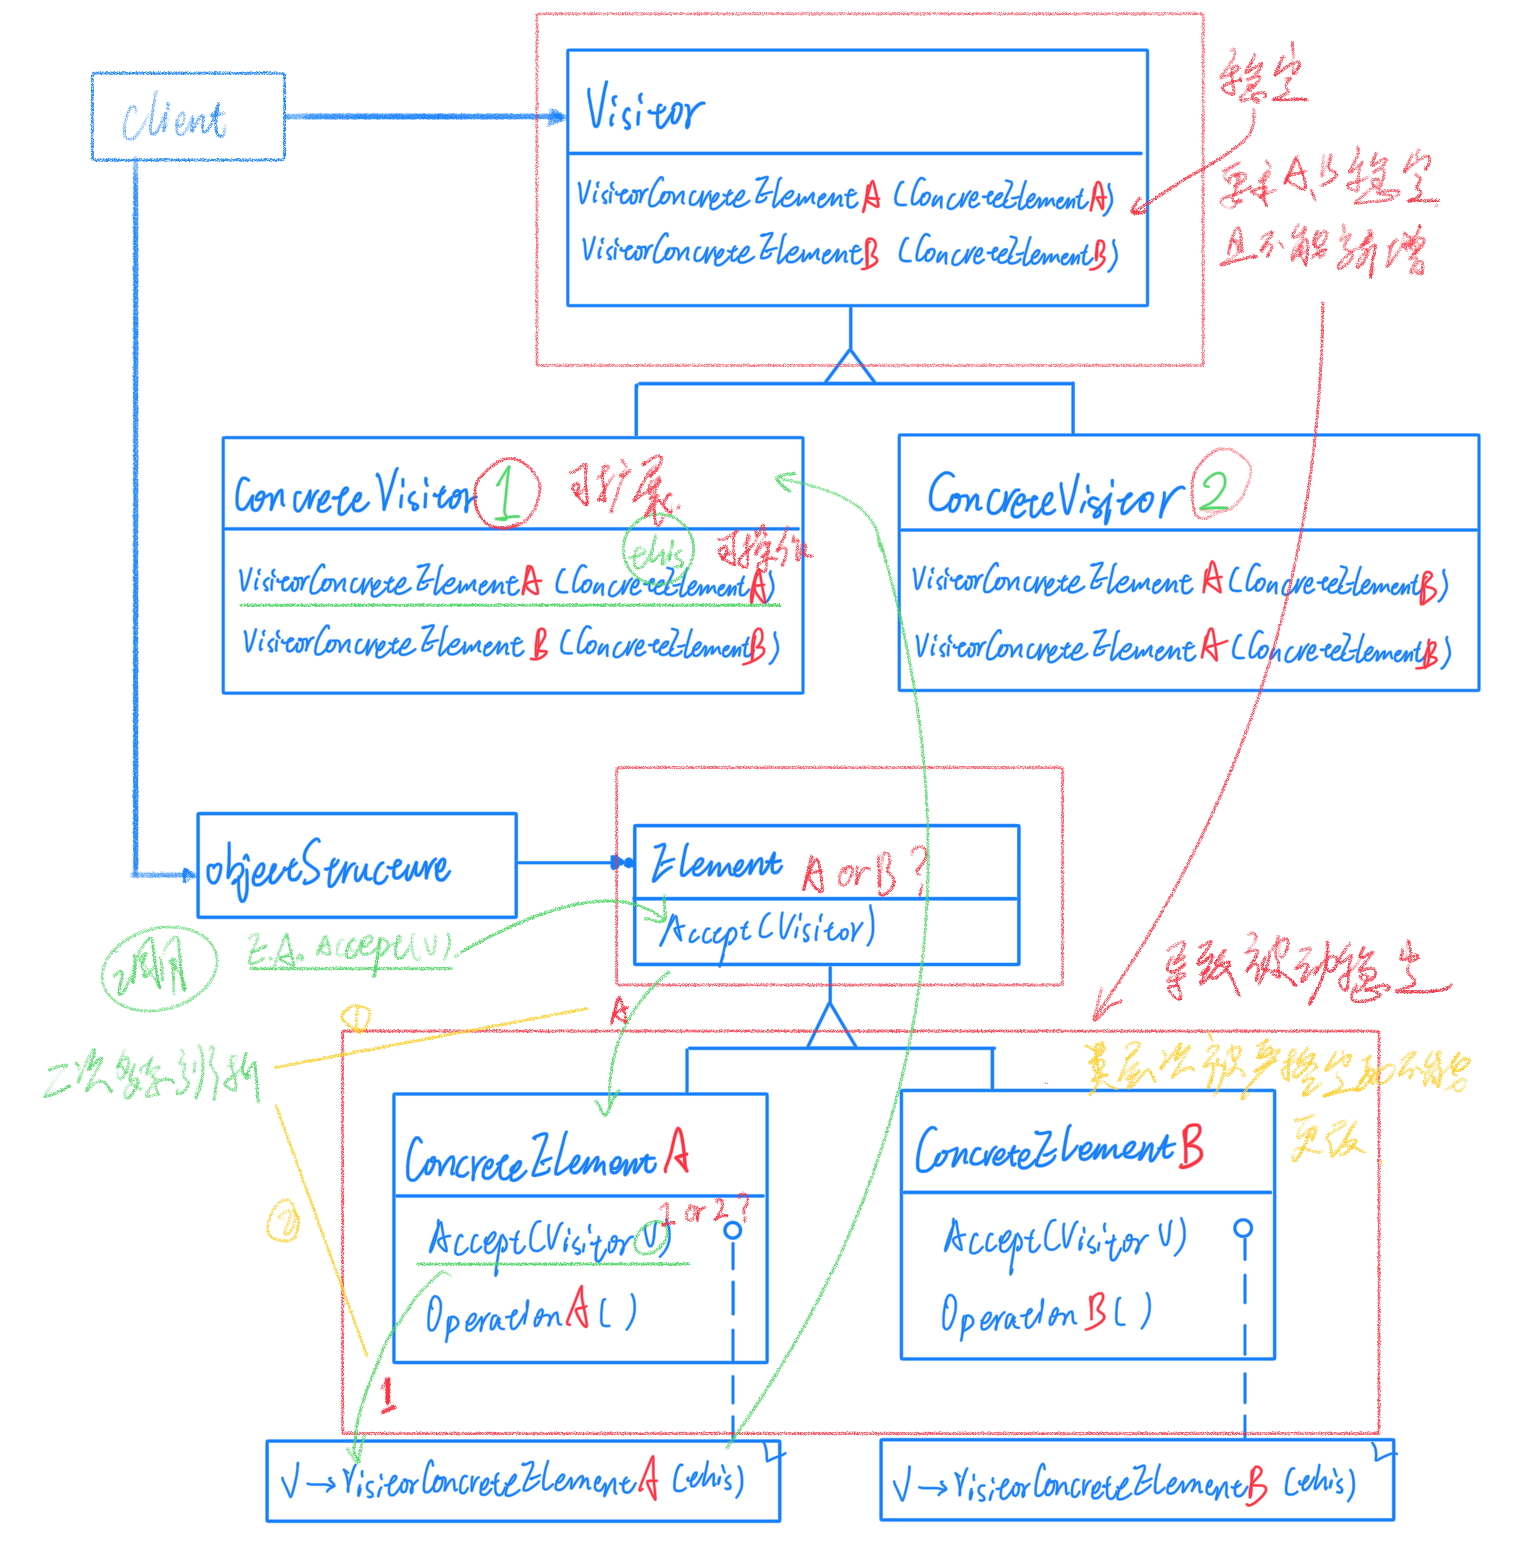 client
Visitor
VisitorConcreteElementA (ConcreteElementA)
VisitorConcreteElementB (ConcreteElementB)
稳定
要求AB稳定
且不能新增
ConcreteVisitor 1 可扩展
this 可操作
VisitorConcreteElementA (ConcreteElementA)
VisitorConcreteElementB (ConcreteElementB)
ConcreteVisitor 2
VisitorConcreteElementA (ConcreteElementB)
VisitorConcreteElementA (ConcreteElementB)
objectStructure
Element A or B?
Accept(Visitor)
调用
E.A. Accept(V).
导致被动稳定
A
①
二次多态
类层次被严 稳定 不能
更改
ConcreteElementA
Accept(Visitor V) 1 or 2?
OperationA()
②
1
ConcreteElementB
Accept(Visitor V)
OperationB()
V→VisitorConcreteElementA (this)
V→VisitorConcreteElementB (this)